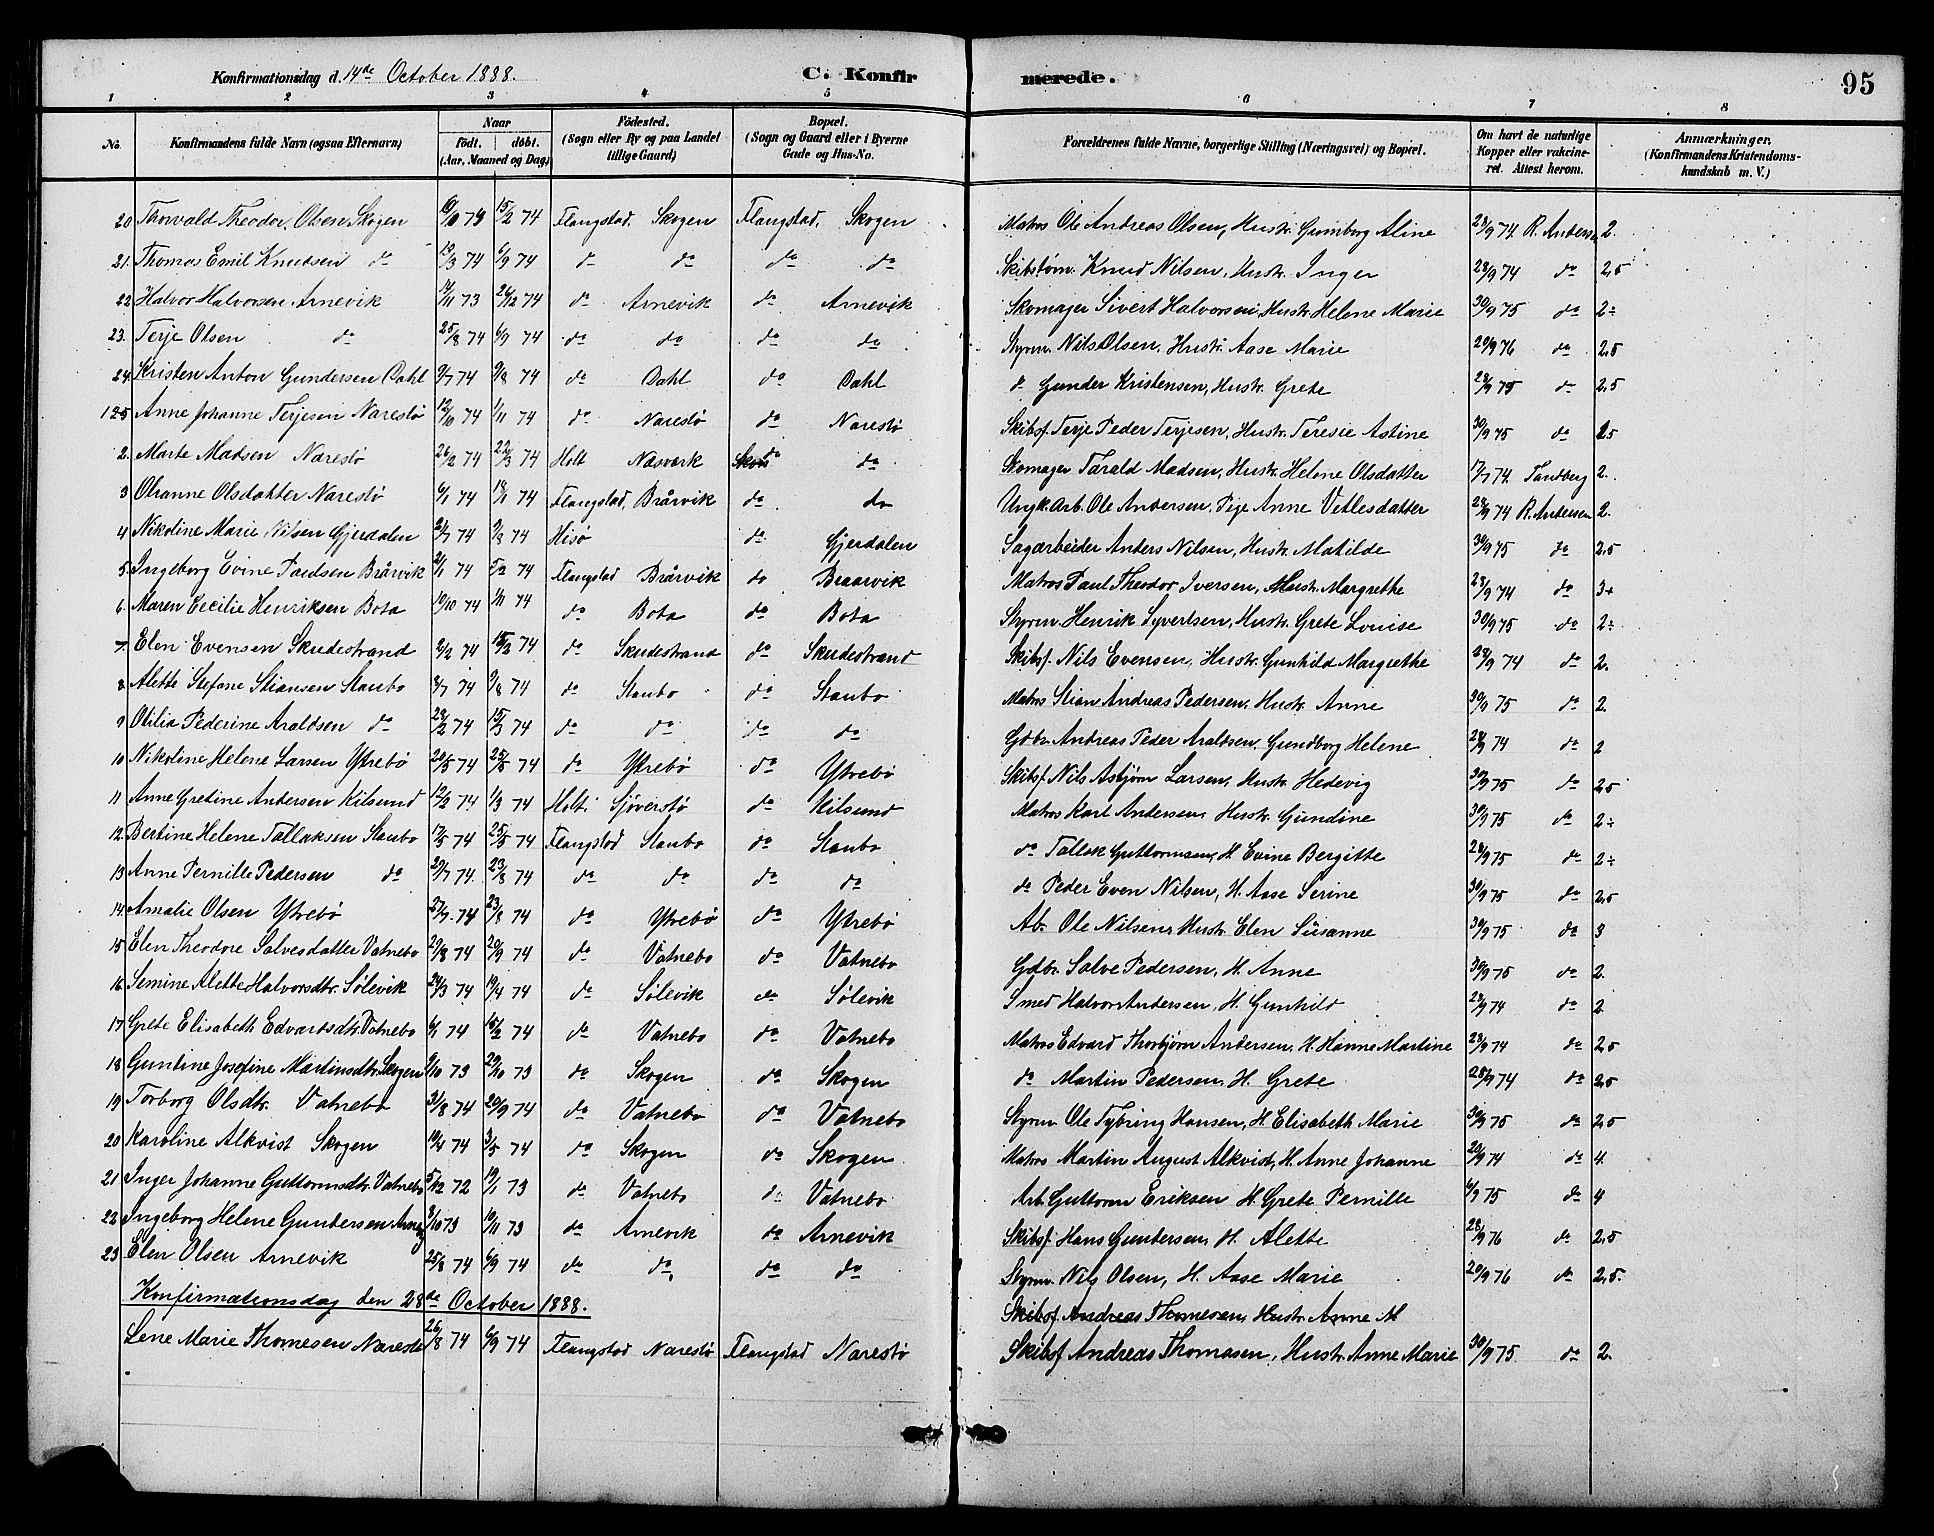 Konfirmationsdag d. 14de October 1888. C. Konfir merede. 95
1 2 3 4 5 6 7 8
No. Konfirmandens fulde Navn (ogsaa Efternavn) Naar født. døbt. (Aar, Maaned og Dag) Fødested. (Sogn eller By og paa Landet tillige Gaard) Bopæl. (Sogn og Gaard eller i Byerne Gade og Hus-No. Forældrenes fulde Navne, borgerlige Stilling (Næringsvei) og Bopæl. Om havt de naturlige Kopper eller vakcineret. Attest herom. Anmærkninger. (Konfirmandens Kristendomskundskab m. V.)
20 Thorvald Theodor Olsen Skogen 15/2 74 Flangstad, Skogen Flangstad, Skogen Matros Ole Andreas Olsen, Hustr. Gunborg Aline 28/9 74 R. Andersen 2.
21. Thomas Emil Knudsen do 19/3 74 6/9 74 do do do do Skibstøm. Knud Nilsen, Hustr. Inger 28/9 74 do 2,5
22 Halvor Halvorsen Arnevik 14/11 73 26/12 74 do Arnevik do Arnevik Skomager Sivert Halvorsen, Hustr. Helene Marie 30/9 75 do 2÷
23. Terje Olsen do 25/8 74 6/9 74 do do do do Styrm. Nils Olsen, Hustr. Aase Marie 20/9 76 do 2,5
24 Kristen Anton Gundersen Dahl 2/7 74 9/8 74 do Dahl do Dahl do Gunder Kristensen, Hustr. Grete 28/9 75 do 2,5
125 Anne Johanne Terjesen Narestø 12/10 74 1/11 74 do Narestø do Narestø Skibsf. Terje Peder Terjesen, Hustr. Teresie Astine 30/9 75 do 2,5
2. Marte Madsen Narestø 26/2 74 22/3 74 Holt Næsverk do do Skomager Tarald Madsen, Hustr. Helene Olsdatter 17/7 74. Tandberg 2.
3 Olianne Olsdatter Narestø 6/1 74 18/1 74 Flangstad, Brårvik do do Ungk. Arb. Ole Andersen, Pige Anne Vetlesdatter 28/9 74 R. Andersen 2.
4 Nikoline Marie Nilsen Gjerdalen 21/7 74 9/8 74 Hisø do Gjerdalen Sagarbeider Anders Nilsen, Hustr. Matilde 30/9 75 do 2,5
5. Ingeborg Evine Paulsen Brårvik 21/1 74 74 Flangstad Brårvik do Braarvik Matros Paul Theodor Iversen, Hustr. Margrethe 28/9 74 do 3+
6 Maren Cecilie Henriksen Bota 10/10 74 1/11 74 do Bota do Bota Styrm. Henrik Syvertsen, Hustr. Grete Louise 30/9 75 do 2÷
7. Elen Evensen Skudestrand 2/2 74 15/2 74 do Skudestrand do Skudestrand Skibsf. Nils Evensen, Hustr. Gunhild Margrethe 28/9 74 do 2.
8 Alette Stefane Stiansen Staubo 8/7 74 9/8 74 do Staubo do Staubo Matros Stian Andreas Pedersen, Hustr. Anne 30/9 75 do 2.
9 Otilia Pederine Araldsen do 28/2 74 15/3 74 do do do do Gdbr. Andreas Peder Araldsen, Gundborg Helene 28/9 74 do 2
10 Nikoline Helene Larsen Ytrebø 20/5 74 25/5 74 do Ytrebø do Ytrebø Skibsf. Nils Asbjørn Larsen, Hustr. Hedevig 30/9 75 do 2,5
11 Anne Gretine Andersen Kilsund 12/2 74 1/3 74 Holt. Sjøverstø do Kilsund Matros Karl Andersen, Hustr. Gundine 30/9 75 do 2÷
12. Bertine Helene Tallaksen Staubo 17/5 74 25/5 74 Flangstad Staubo do Staubo do Tallak Guttormsen, H. Evine Bergitte 28/9 75 do 2÷
13 Anne Pernille Pedersen do 29/7 74. 23/8 74 do do do do do Peder Even Nilsen, H. Aase Serine 30/9 75 do 2,5
14. Amalie Olsen Ytrebø 27/7 74 23/8 74 do Ytrebø do Ytrebø Ab. Ole Nilsen, Hustr. Elen Susanne 30/9 75 do 3
15 Elen Theodore Salvesdatter Vatnebo 29/8 74 20/9 74 do Vatnebo do Vatnebo Gdbr. Salve Pedersen, H. Anne 30/9 75 do 2.
16 Semine Alette Halvorsdtr. Sølevik 24/3 74 19/4 74 do Sølevik do Sølevik Smed Halvor Andersen, H. Gunhild 28/9 74 do 2
17 Grete Elisabeth Edvardsdtr. Vatnebo 6/1 74 15/2 74 do Vatnebo do Vatnebo Matros Edvard Thorbjørn Andersen, H. Hanne Martine 28/9 74 do 2,5
18 Guntine Josefine Martinsdtr. Skogen 9/10 73 29/10 73 do Skogen do Skogen do Martin Pedersen, H. Grete 28/9 74 do 2,5
19 Torborg Olsdtr. Vatnebo 31/8 74 20/9 74 do Vatnebo do Vatnebo Styrm. Ole Tybring Hansen, H. Elisabeth Marie 30/9 75 do 2,5
20 Karoline Alkvist Skogen 19/4 74 3/5 74 do Skogen do Skogen Matros Martin August Alkvist, H. Anne Johanne 20/9 74 do 4.
21 Inger Johanne Guttormsdtr. Vatnebo 5/12 72 19/1 73 do Vatnebo do Vatnebo Arb. Guttorm Eriksen H. Grete Pernille 6/9 75 do 4
22 Ingeborg Helene Gundersen 3/10 73 10/11 73 do Arnevik do Arnevik Skibsf. Hans Gundersen, H. Alette 28/9 76 do 2,5
23 Elen Olsen Arnevik 25/8 74 6/9 74 do do do do Styrm. Nils Olsen, H. Aase Marie 20/9 76 do 2,5.
Konfirmationsdag den 28de October 1888. Skibsf. Andreas Thomesen, Hustr. Anne M
Lene Marie Thomesen Narestø 26/8 74 6/9 74 Flangstad Narestø Flangstad Narestø Skibsf. Andreas Thomasen, Hustr. Anne Marie 30/9 75 do 2.